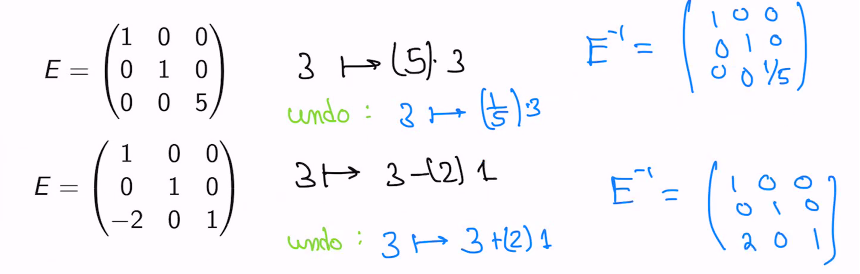 E = (1 0 0
0 1 0
0 0 5)
3 ↦ (5)·3
undo : 3 ↦ (1/5)·3
E⁻¹ = (1 0 0
0 1 0
0 0 1/5)
E = (1 0 0
0 1 0
−2 0 1)
3 ↦ 3 −(2) 1
undo : 3 ↦ 3 +(2) 1
E⁻¹ = (1 0 0
0 1 0
2 0 1)